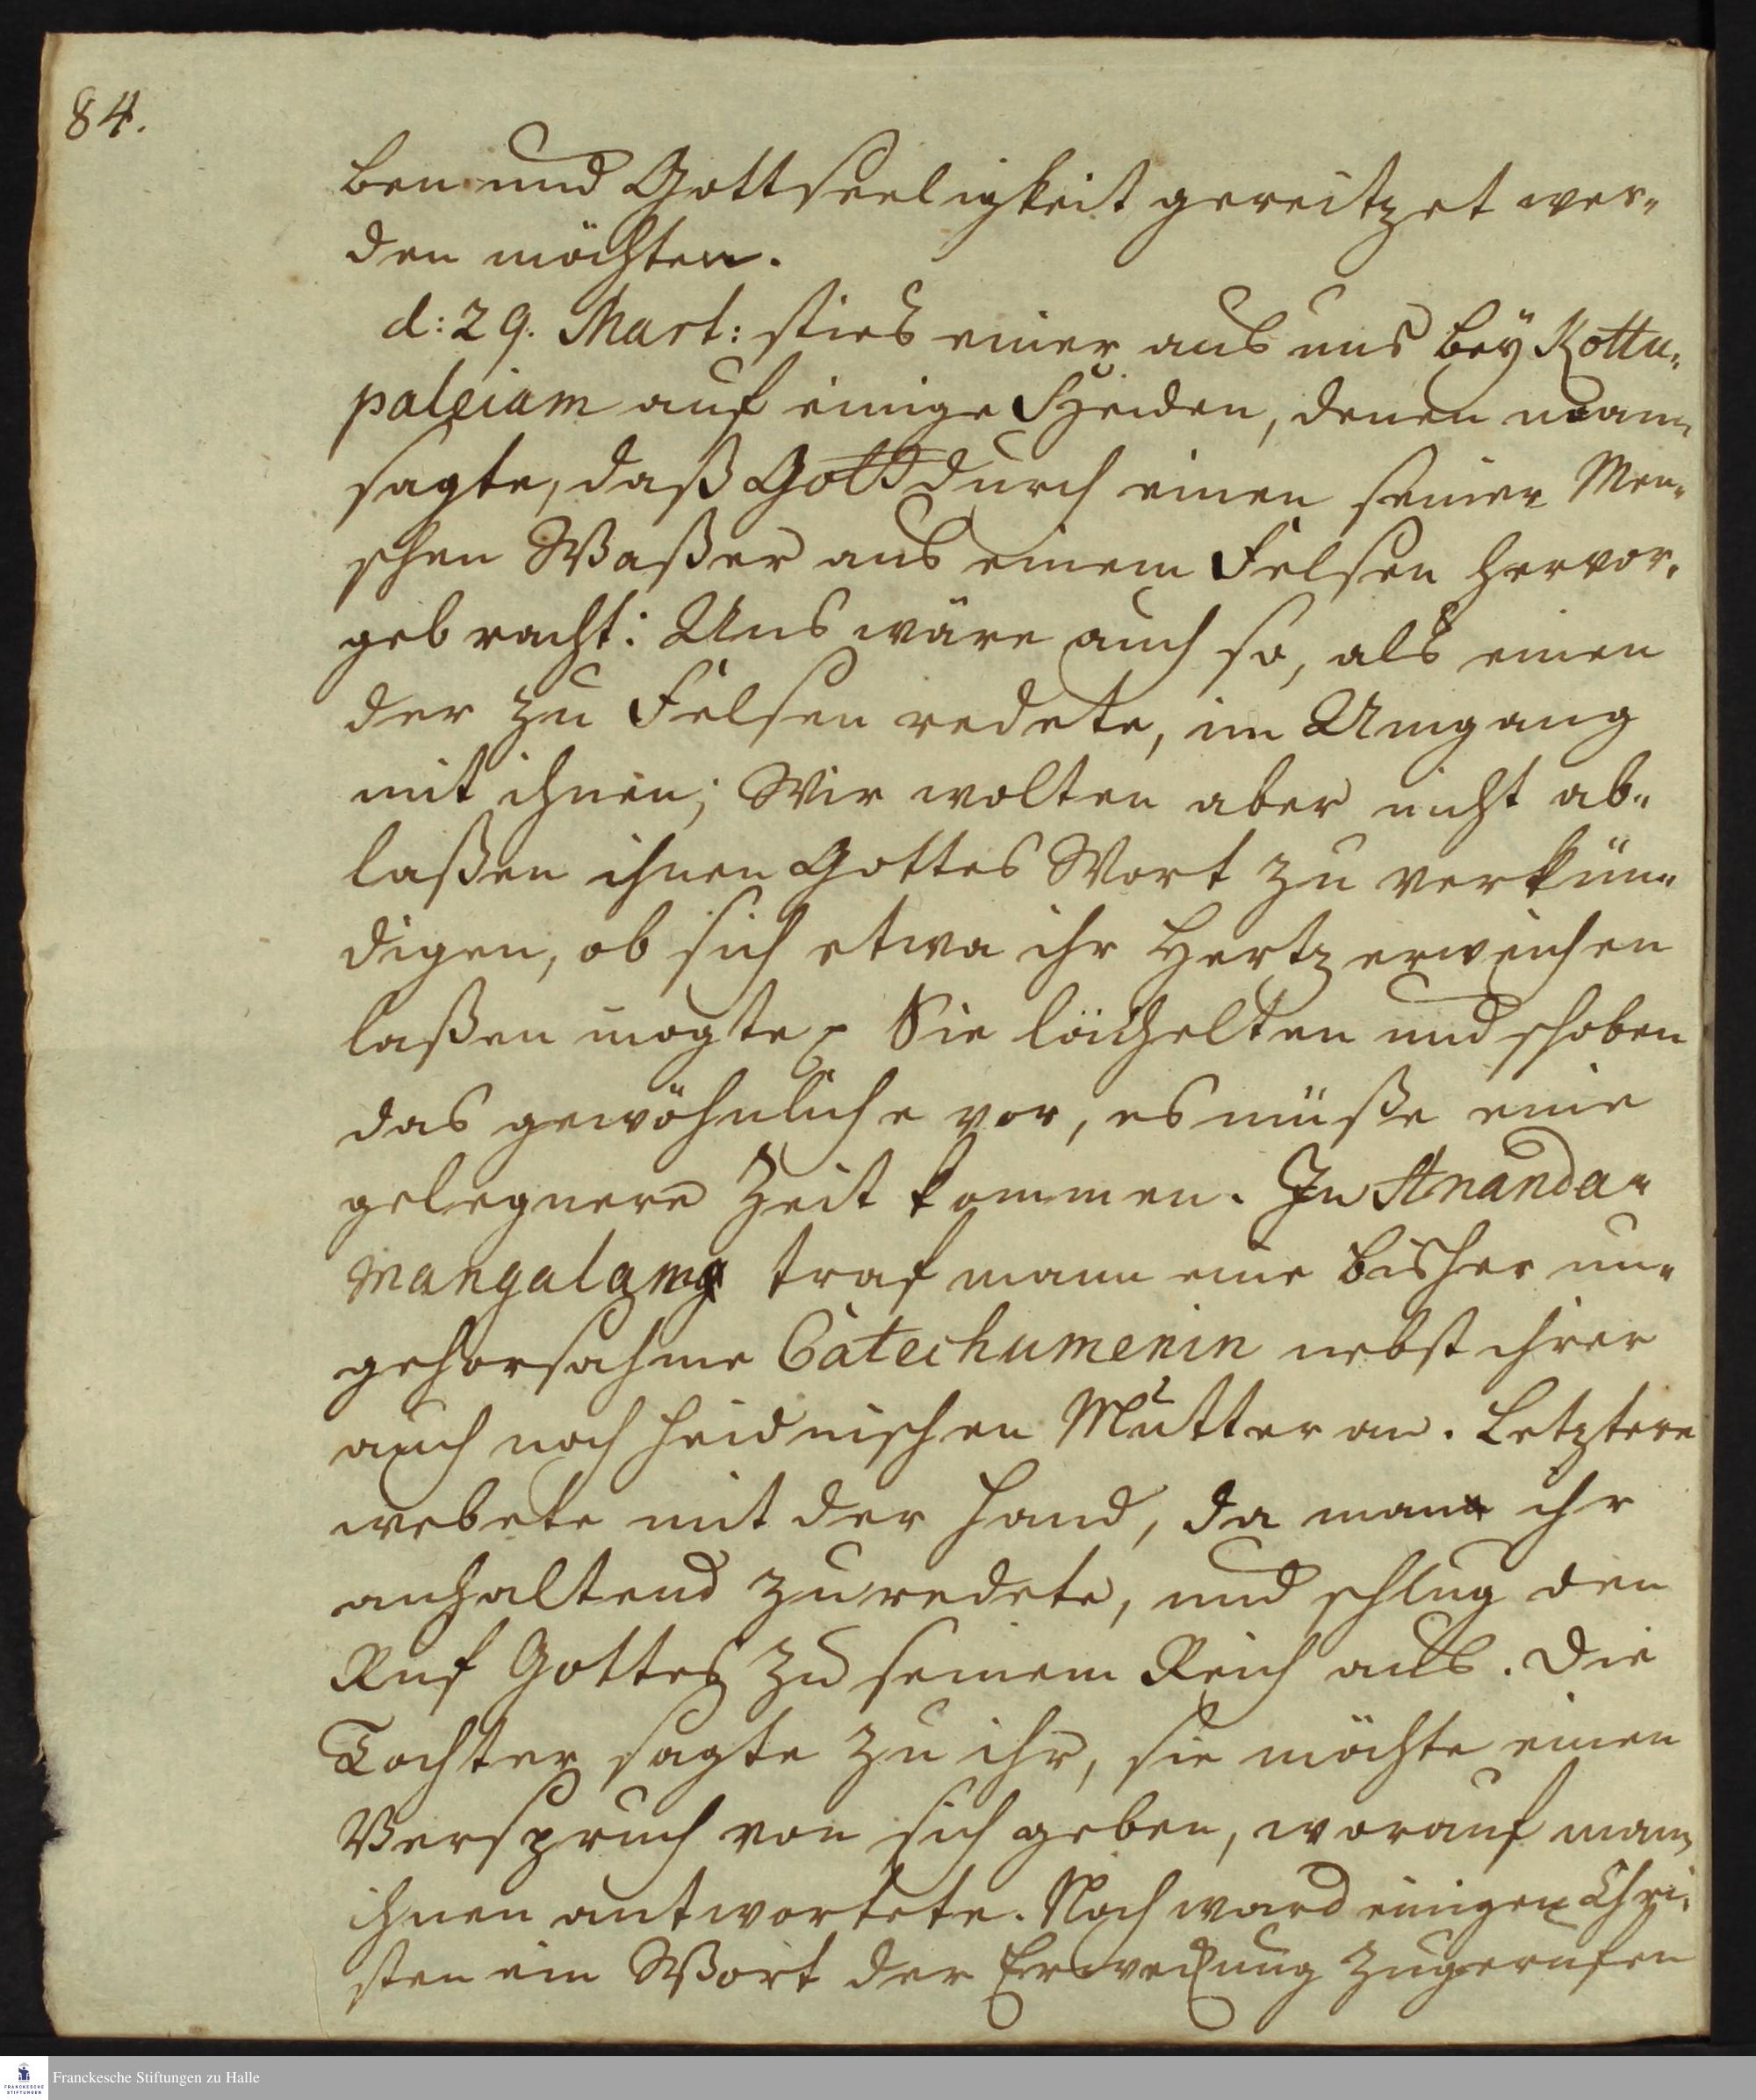 84.
ben und Gottseeligkeit gereitzet wer„
den möchten.
d: 29. Mart: sties einer aus uns bey Kottu„
paleiam auf einige Heiden, denen man
sagte, daß Gott durch einen seiner Men„
schen Waßer aus einem Felsen hervor„
gebracht: Uns wäre auch so, als einen
der zu Felsen redete, im Umgang
mit ihnen; Wir wolten aber nicht ab„
laßen ihnen Gottes Wort zu verkün„
digen, ob sich etwa ihr Hertz erweichen
laßen mogte. Sie lächelten und schoben
das gewöhnliche vor, es müße eine
gelegnere Zeit kommen. In Ananda„
mangalam traf mann eine bisher un„
gehorsahme Catechumenin nebst ihrer
auch noch heidnischen Mutter an. Letztere
webete mit der Hand, da man ihr
anhaltend zuredete, und schlug den
Ruf Gottes zu seinem Reich aus. Die
Tochter sagte zu ihr, sie möchte einen
Verspruch von sich geben, worauf man
ihnen antwortete. Noch ward einigen Chri„
sten ein Wort der Erweckung zugerufen
Franckesche Stiftungen zu Halle
FRANCKESCHE
STIFTUNGEN